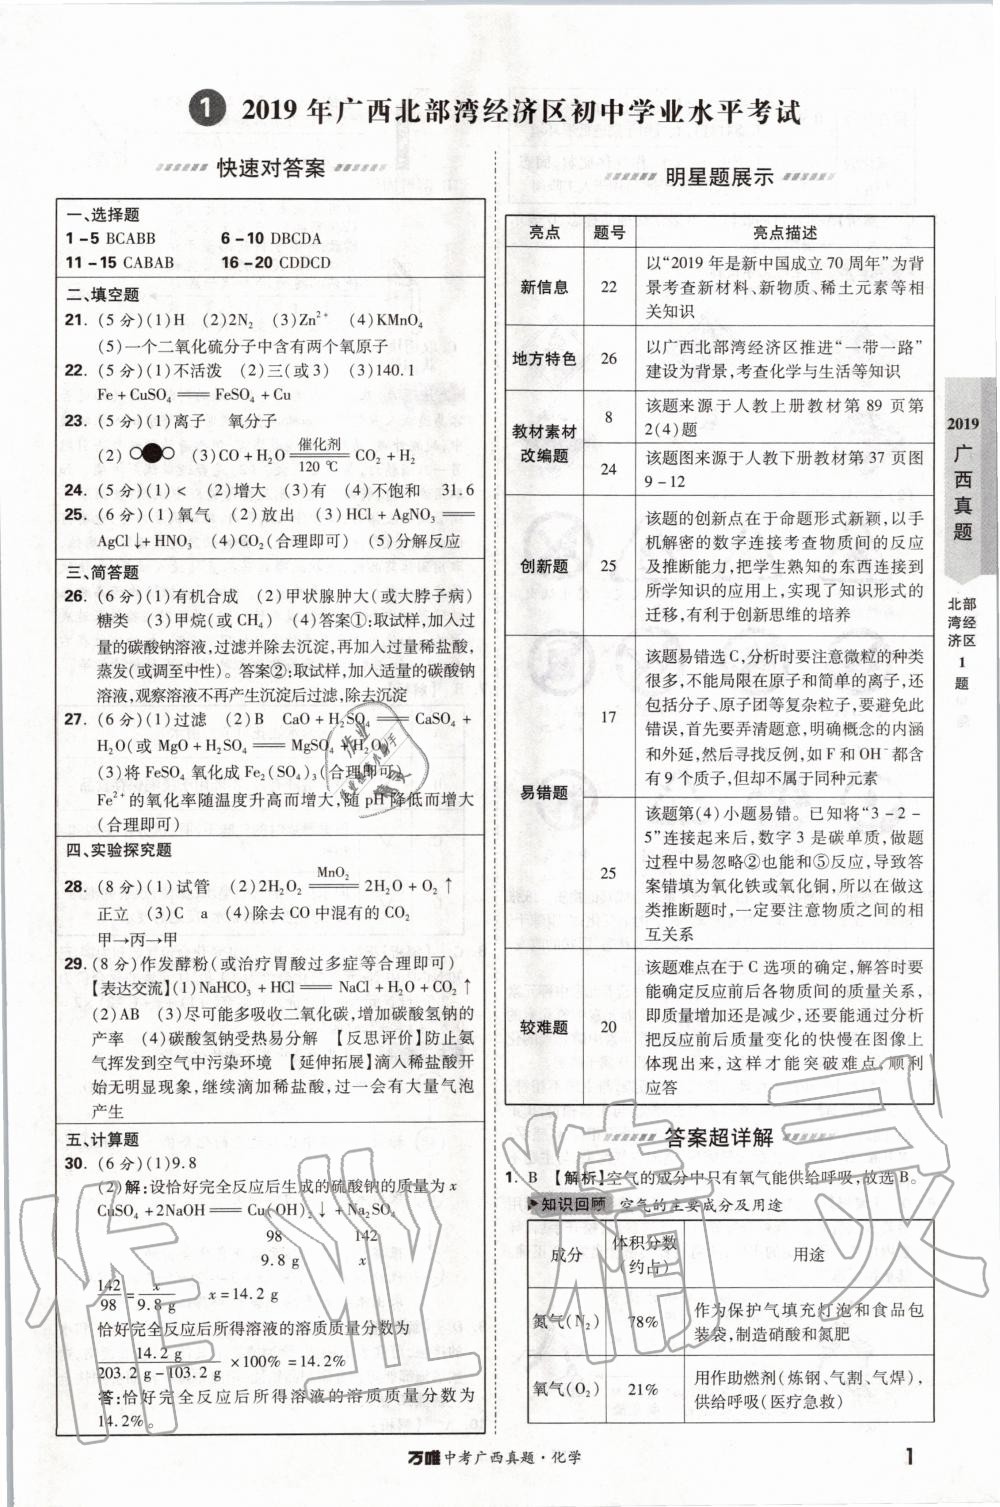 1 2019年广西北部湾经济区初中学业水平考试
快速对答案
一、选择题
1-5 BCABB 6-10 DBCDA
11-15 CABAB 16-20 CDDCD
二、填空题
21.(5分)(1)H (2)2N₂ (3)Zn²⁺ (4)KMnO₄
(5)一个二氧化硫分子中含有两个氧原子
22.(5分)(1)不活泼 (2)三(或3) (3)140.1
Fe+CuSO₄══FeSO₄+Cu
23.(5分)(1)离子 氧分子
(2) (3)CO+H₂O 催化剂 120 ℃ CO₂+H₂
24.(5分)(1)< (2)增大 (3)有 (4)不饱和 31.6
25.(6分)(1)氧气 (2)放出 (3)HCl+AgNO₃══
AgCl↓+HNO₃ (4)CO₂(合理即可) (5)分解反应
三、简答题
26.(6分)(1)有机合成 (2)甲状腺肿大(或大脖子病)
糖类 (3)甲烷(或CH₄) (4)答案①:取试样,加入过
量的碳酸钠溶液,过滤并除去沉淀,再加入过量稀盐酸,
蒸发(或调至中性)。答案②:取试样,加入适量的碳酸钠
溶液,观察溶液不再产生沉淀后过滤,除去沉淀
27.(6分)(1)过滤 (2)B CaO+H₂SO₄══CaSO₄+
H₂O(或MgO+H₂SO₄══MgSO₄+H₂O)
(3)将FeSO₄氧化成Fe₂(SO₄)₃(合理即可)
Fe²⁺的氧化率随温度升高而增大,随pH降低而增大
(合理即可)
四、实验探究题
28.(8分)(1)试管 (2)2H₂O₂ MnO₂ 2H₂O+O₂↑
正立 (3)C a (4)除去CO中混有的CO₂
甲→丙→甲
29.(8分)作发酵粉(或治疗胃酸过多症等合理即可)
【表达交流】(1)NaHCO₃+HCl══NaCl+H₂O+CO₂↑
(2)AB (3)尽可能多吸收二氧化碳,增加碳酸氢钠的
产率 (4)碳酸氢钠受热易分解 【反思评价】防止氨
气挥发到空气中污染环境 【延伸拓展】滴入稀盐酸开
始无明显现象,继续滴加稀盐酸,过一会有大量气泡
产生
五、计算题
30.(6分)(1)9.8
(2)解:设恰好完全反应后生成的硫酸钠的质量为x
CuSO₄+2NaOH══Cu(OH)₂↓+Na₂SO₄
98 142
9.8 g x
142/98=x/9.8 g x=14.2 g
恰好完全反应后所得溶液的溶质质量分数为
14.2 g/(203.2 g-103.2 g)×100%=14.2%
答:恰好完全反应后所得溶液的溶质质量分数为
14.2%。
明星题展示
亮点 题号 亮点描述
新信息 22 以“2019年是新中国成立70周年”为背
景考查新材料、新物质、稀土元素等相
关知识
地方特色 26 以广西北部湾经济区推进“一带一路”
建设为背景,考查化学与生活等知识
教材素材
改编题
8 该题来源于人教上册教材第89页第
2(4)题
24 该题图来源于人教下册教材第37页图
9-12
创新题 25 该题的创新点在于命题形式新颖,以手
机解密的数字连接考查物质间的反应
及推断能力,把学生熟知的东西连接到
所学知识的应用上,实现了知识形式的
迁移,有利于创新思维的培养
易错题
17 该题易错选C,分析时要注意微粒的种类
很多,不能局限在原子和简单的离子,还
包括分子、原子团等复杂粒子,要避免此
错误,首先要弄清题意,明确概念的内涵
和外延,然后寻找反例,如F和OH⁻都含
有9个质子,但却不属于同种元素
25 该题第(4)小题易错。已知将“3-2-
5”连接起来后,数字3是碳单质,做题
过程中易忽略②也能和⑤反应,导致答
案错填为氧化铁或氧化铜,所以在做这
类推断题时,一定要注意物质之间的相
互关系
较难题 20 该题难点在于C选项的确定,解答时要
能确定反应前后各物质间的质量关系,
即质量增加还是减少,还要能通过分析
把反应前后质量变化的快慢在图像上
体现出来,这样才能突破难点,顺利
应答
答案超详解
1. B 【解析】空气的成分中只有氧气能供给呼吸,故选B。
知识回顾 空气的主要成分及用途
成分 体积分数(约占) 用途
氮气(N₂) 78% 作为保护气填充灯泡和食品包
装袋,制造硝酸和氮肥
氧气(O₂) 21% 用作助燃剂(炼钢、气割、气焊),
供给呼吸(医疗急救)
2019
广西真题
北部湾经济区
1
题
万唯中考广西真题·化学
1
作业精灵